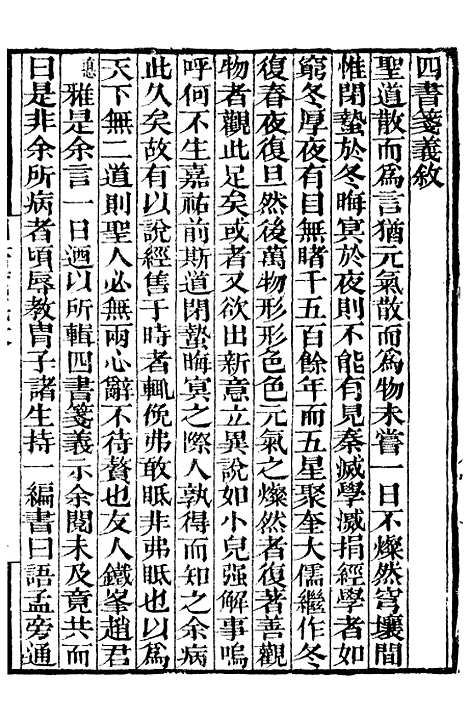 四書箋義敘
聖道散而爲言猶元氣散而爲物未嘗一日不燦然穹壤間
惟閉蟄於冬晦冥於夜則不能有見秦滅學滅捐經學者如
窮冬厚夜有目無睹千五百餘年而五星聚奎大儒繼作冬
復春夜復旦然後萬物形形色色元氣之燦然者復著善觀
物者觀此足矣或者又欲出新意立異說如小兒强解事嗚
呼何不生嘉祐前斯道閉蟄晦冥之際人孰得而知之余病
此久矣故有以說經售于時者輒俛弗敢眂非弗眂也以爲
天下無二道則聖人必無兩心辭不待贅也友人鐵峯趙君
悳雅是余言一日迺以所輯四書箋義示余閱未及竟共而
曰是非余所病者頃辱教胄子諸生持一編書曰語孟旁通